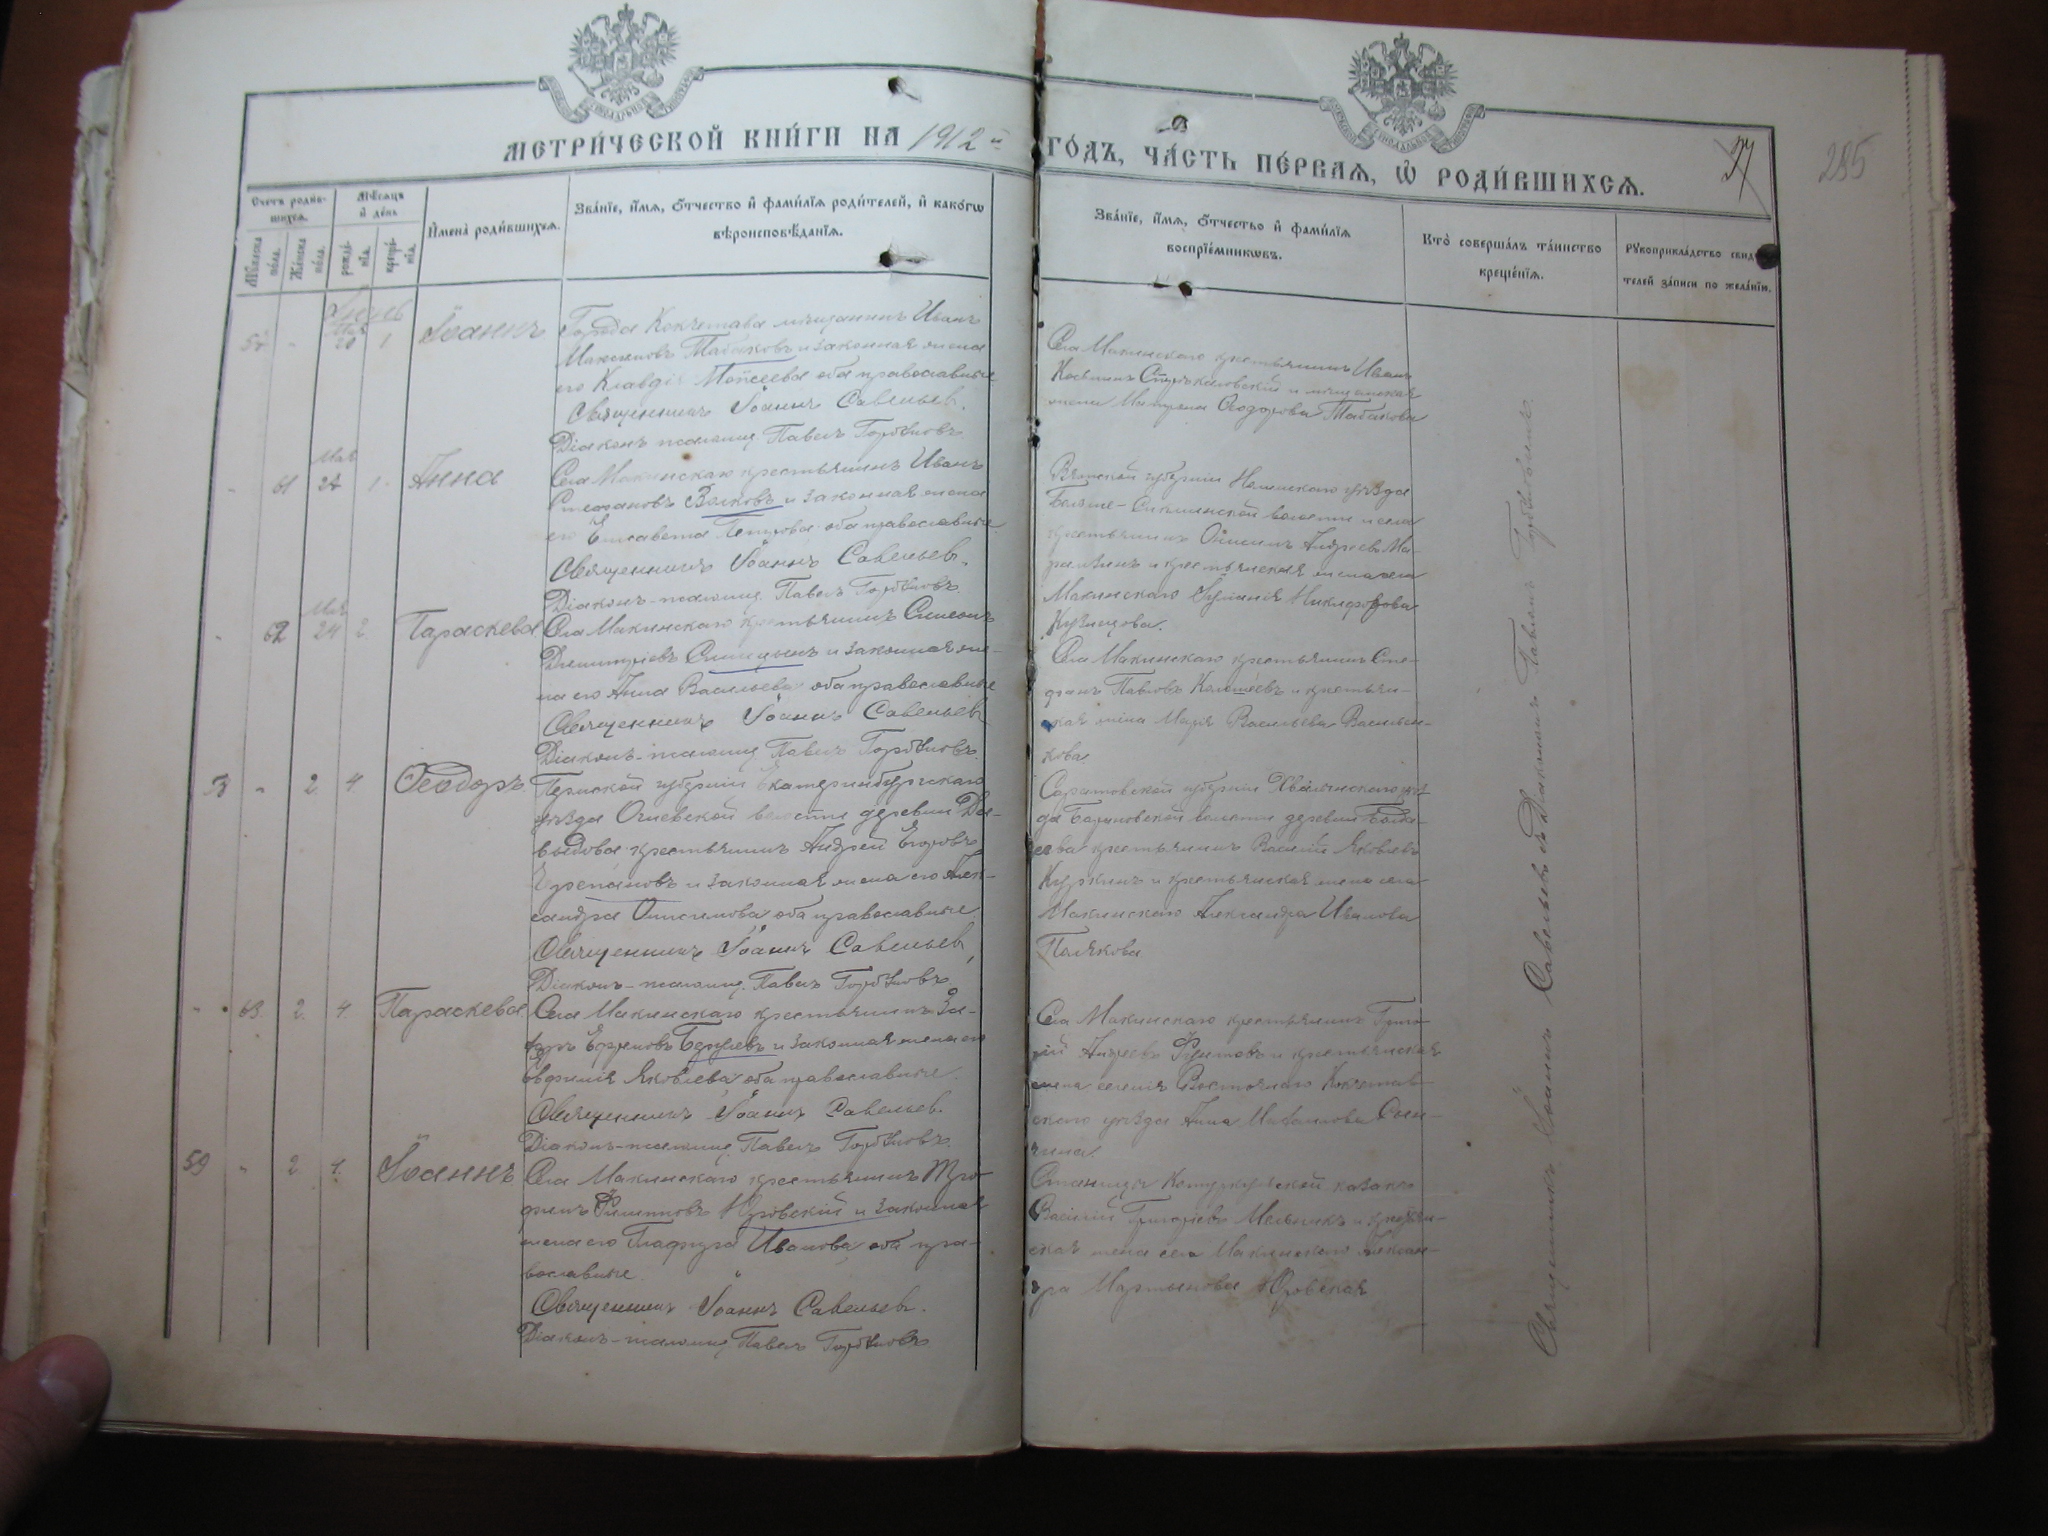 МЕТРИ́ЧЕСКОЙ КНИ́ГИ НА 1912 й ГО́ДЪ, ЧА́СТЬ ПЕ́РВАѦ, Ѿ РОДИ́ВШИХСѦ.
285
Счетъ роди́вшихсѧ.
Мѣ́сѧцъ и҆ де́нь
И҆мена̀ роди́вшихсѧ.
Зва́нїе, и҆́мѧ, ѻ҆́тчество и҆ фами́лїѧ роди́телей, и҆ како́гѡ
вѣроисповѣ́данїѧ.
Зва́нїе, и҆́мѧ, ѻ҆́тчество и҆ фами́лїѧ
воспрїе́мникѡвъ.
Кто̀ соверша́лъ та́инство
креще́нїѧ.
Рꙋкоприкла́дство свидѣ́
телей за́писи по жела́нїю.
Мꙋ́жеска по́ла.
Же́нска по́ла.
рожде́нїѧ.
креще́нїѧ.
Мая 20 1 Іоаннъ
Города Кокчетава мѣщанинъ Иванъ
Максимовъ Табаковъ и законная жена
его Клавдія Моисеева оба православные
Священникъ Іоаннъ Савельев.
Діаконъ-псаломщ. Павелъ Горбуновъ
Села Макинскаго крестьянинъ Иванъ
Косьминъ и мѣщанская
жена Матрена Ѳеодорова Табакова
61 Мая 1 Анна
Села Макинскаго крестьянинъ Иванъ
Стефановъ Волковъ и законная жена
его Елисавета Петрова оба православные
Священникъ Іоаннъ Савельев.
Діаконъ-псаломщ. Павелъ Горбуновъ
Вятской губерніи Нолинскаго уѣзда
волости и села
крестьянинъ Онисимъ Андреевъ
и крестьянская жена села
Макинскаго Никифорова
Кузнецова.
62 Мая 24 2 Параскева
Села Макинскаго крестьянинъ Симеонъ
Димитріевъ Синицынъ и законная же-
на его Анна Васильева оба православные
Священникъ Іоаннъ Савельев
Діаконъ-псаломщ. Павелъ Горбуновъ
Села Макинскаго крестьянинъ Сте-
фанъ Павловъ и крестьян-
ская жена Марія Васильева Василь-
кова
" 2 4 Ѳеодоръ
Пермской губерніи Екатеринбургскаго
уѣзда Огневской волости деревни
крестьянинъ Андрей Егоровъ
и законная жена его Алек-
сандра Онисимова оба православные
Священникъ Іоаннъ Савельев
Діаконъ-псаломщ. Павелъ Горбуновъ
Саратовской губерніи Хвалынскаго уѣз
да волости деревни
крестьянинъ Василій Яковлевъ
Куркинъ и крестьянская жена села
Макинскаго Александра Иванова
Полякова
" 63. 2. 4. Параскева
Села Макинскаго крестьянинъ
Ефремовъ и законная жена его
Евфимія Яковлева оба православные.
Священникъ Іоаннъ Савельев.
Діаконъ-псаломщ. Павелъ Горбуновъ
Села Макинскаго крестьянинъ Григо-
рій Андреевъ и крестьянская
жена селенія Восточнаго Кокчетав-
скаго уѣзда Анна
59 " 2 4. Іоаннъ
Села Макинскаго крестьянинъ Тро-
фимъ Филипповъ Юровскій и законная
жена его Глафира Иванова, оба пра-
вославные.
Священникъ Іоаннъ Савельев.
Діаконъ-псаломщ. Павелъ Горбуновъ
Станицы казакъ
Василій Григорьевъ Мельникъ и крестьян-
ская жена села Макинскаго Алексан-
дра Мартынова Юровская
Священникъ Іоаннъ Савельевъ съ діакономъ Павломъ Горбуновымъ.